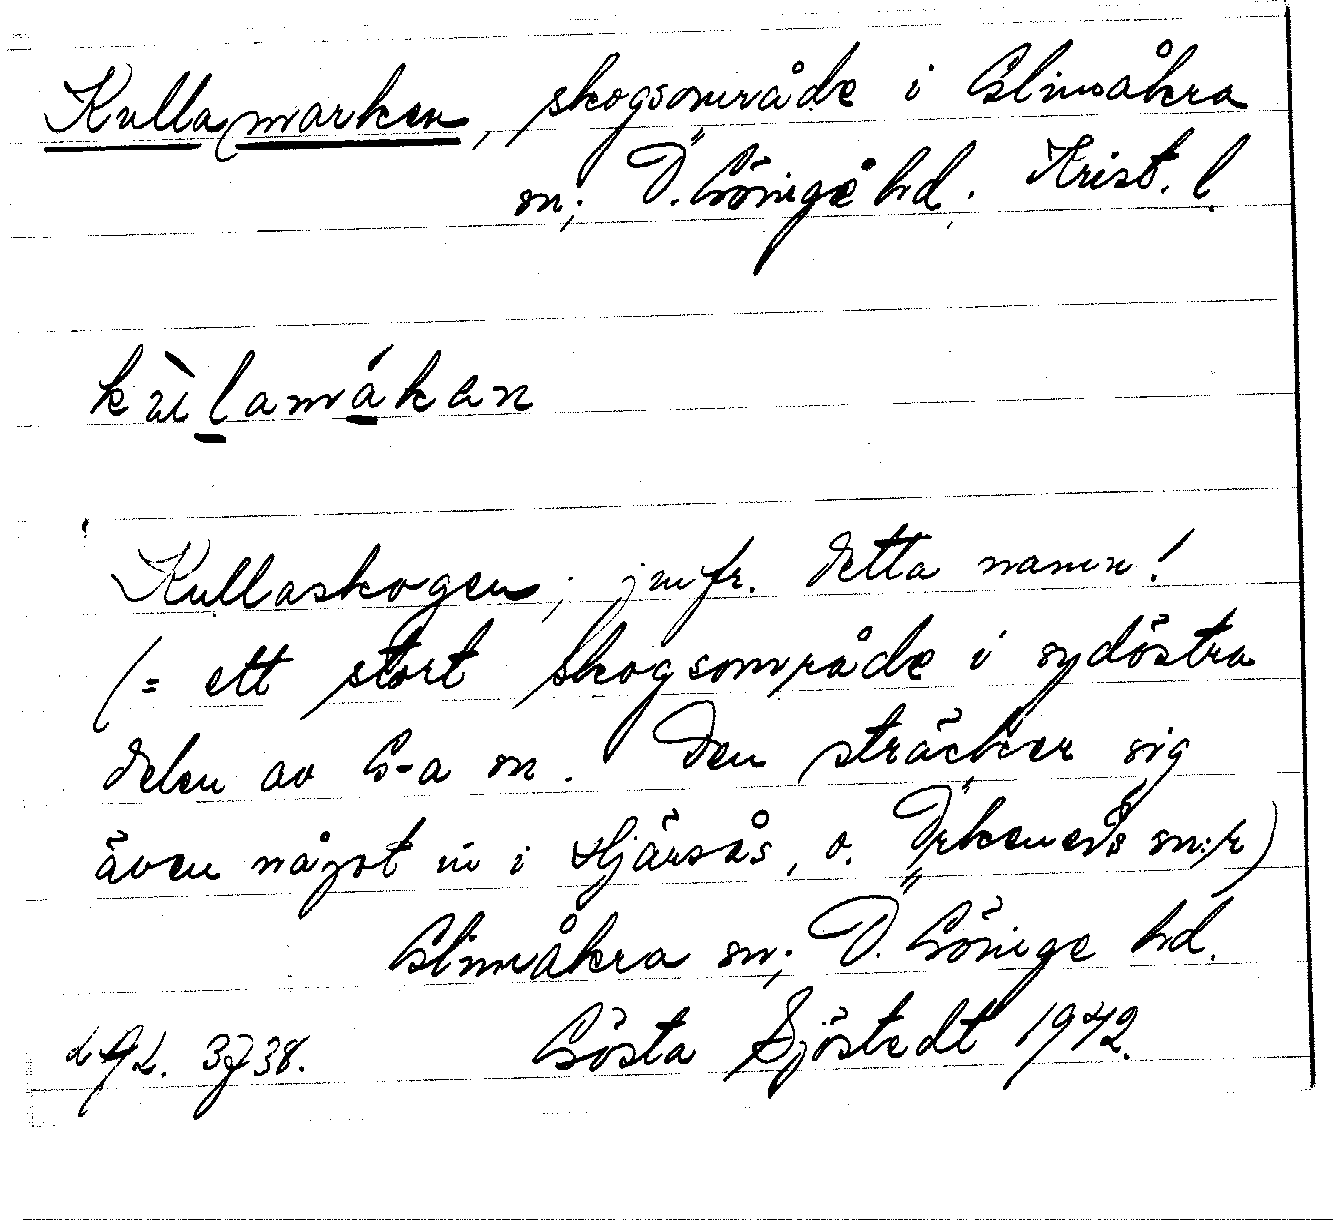 Kullamarken, skogsområde i Glimåkra
sn; Ö. Göinge hd. Krist. l.
kùlamákan
Kullaskogen; jmfr. detta namn!
(= ett stort skogsområde i sydöstra
delen av G-a sn. Den sträcker sig
även något in i Hjärsås, o. Örkeneds sn:r)
Glimåkra sn; Ö. Göinge hd.
3738. Gösta Sjöstedt 1942.